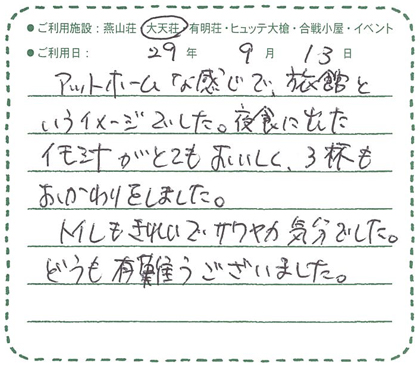 ●ご利用施設:燕山荘・大天荘・有明荘・ヒュッテ大槍・合戦小屋・イベント
●ご利用日: 29年 9月 13日
アットホームな感じで、旅館と
いうイメージでした。夜食に出た
イモ汁がとてもおいしく、3杯も
おかわりをしました。
トイレもきれいでサワヤカ気分でした。
どうも有難うございました。